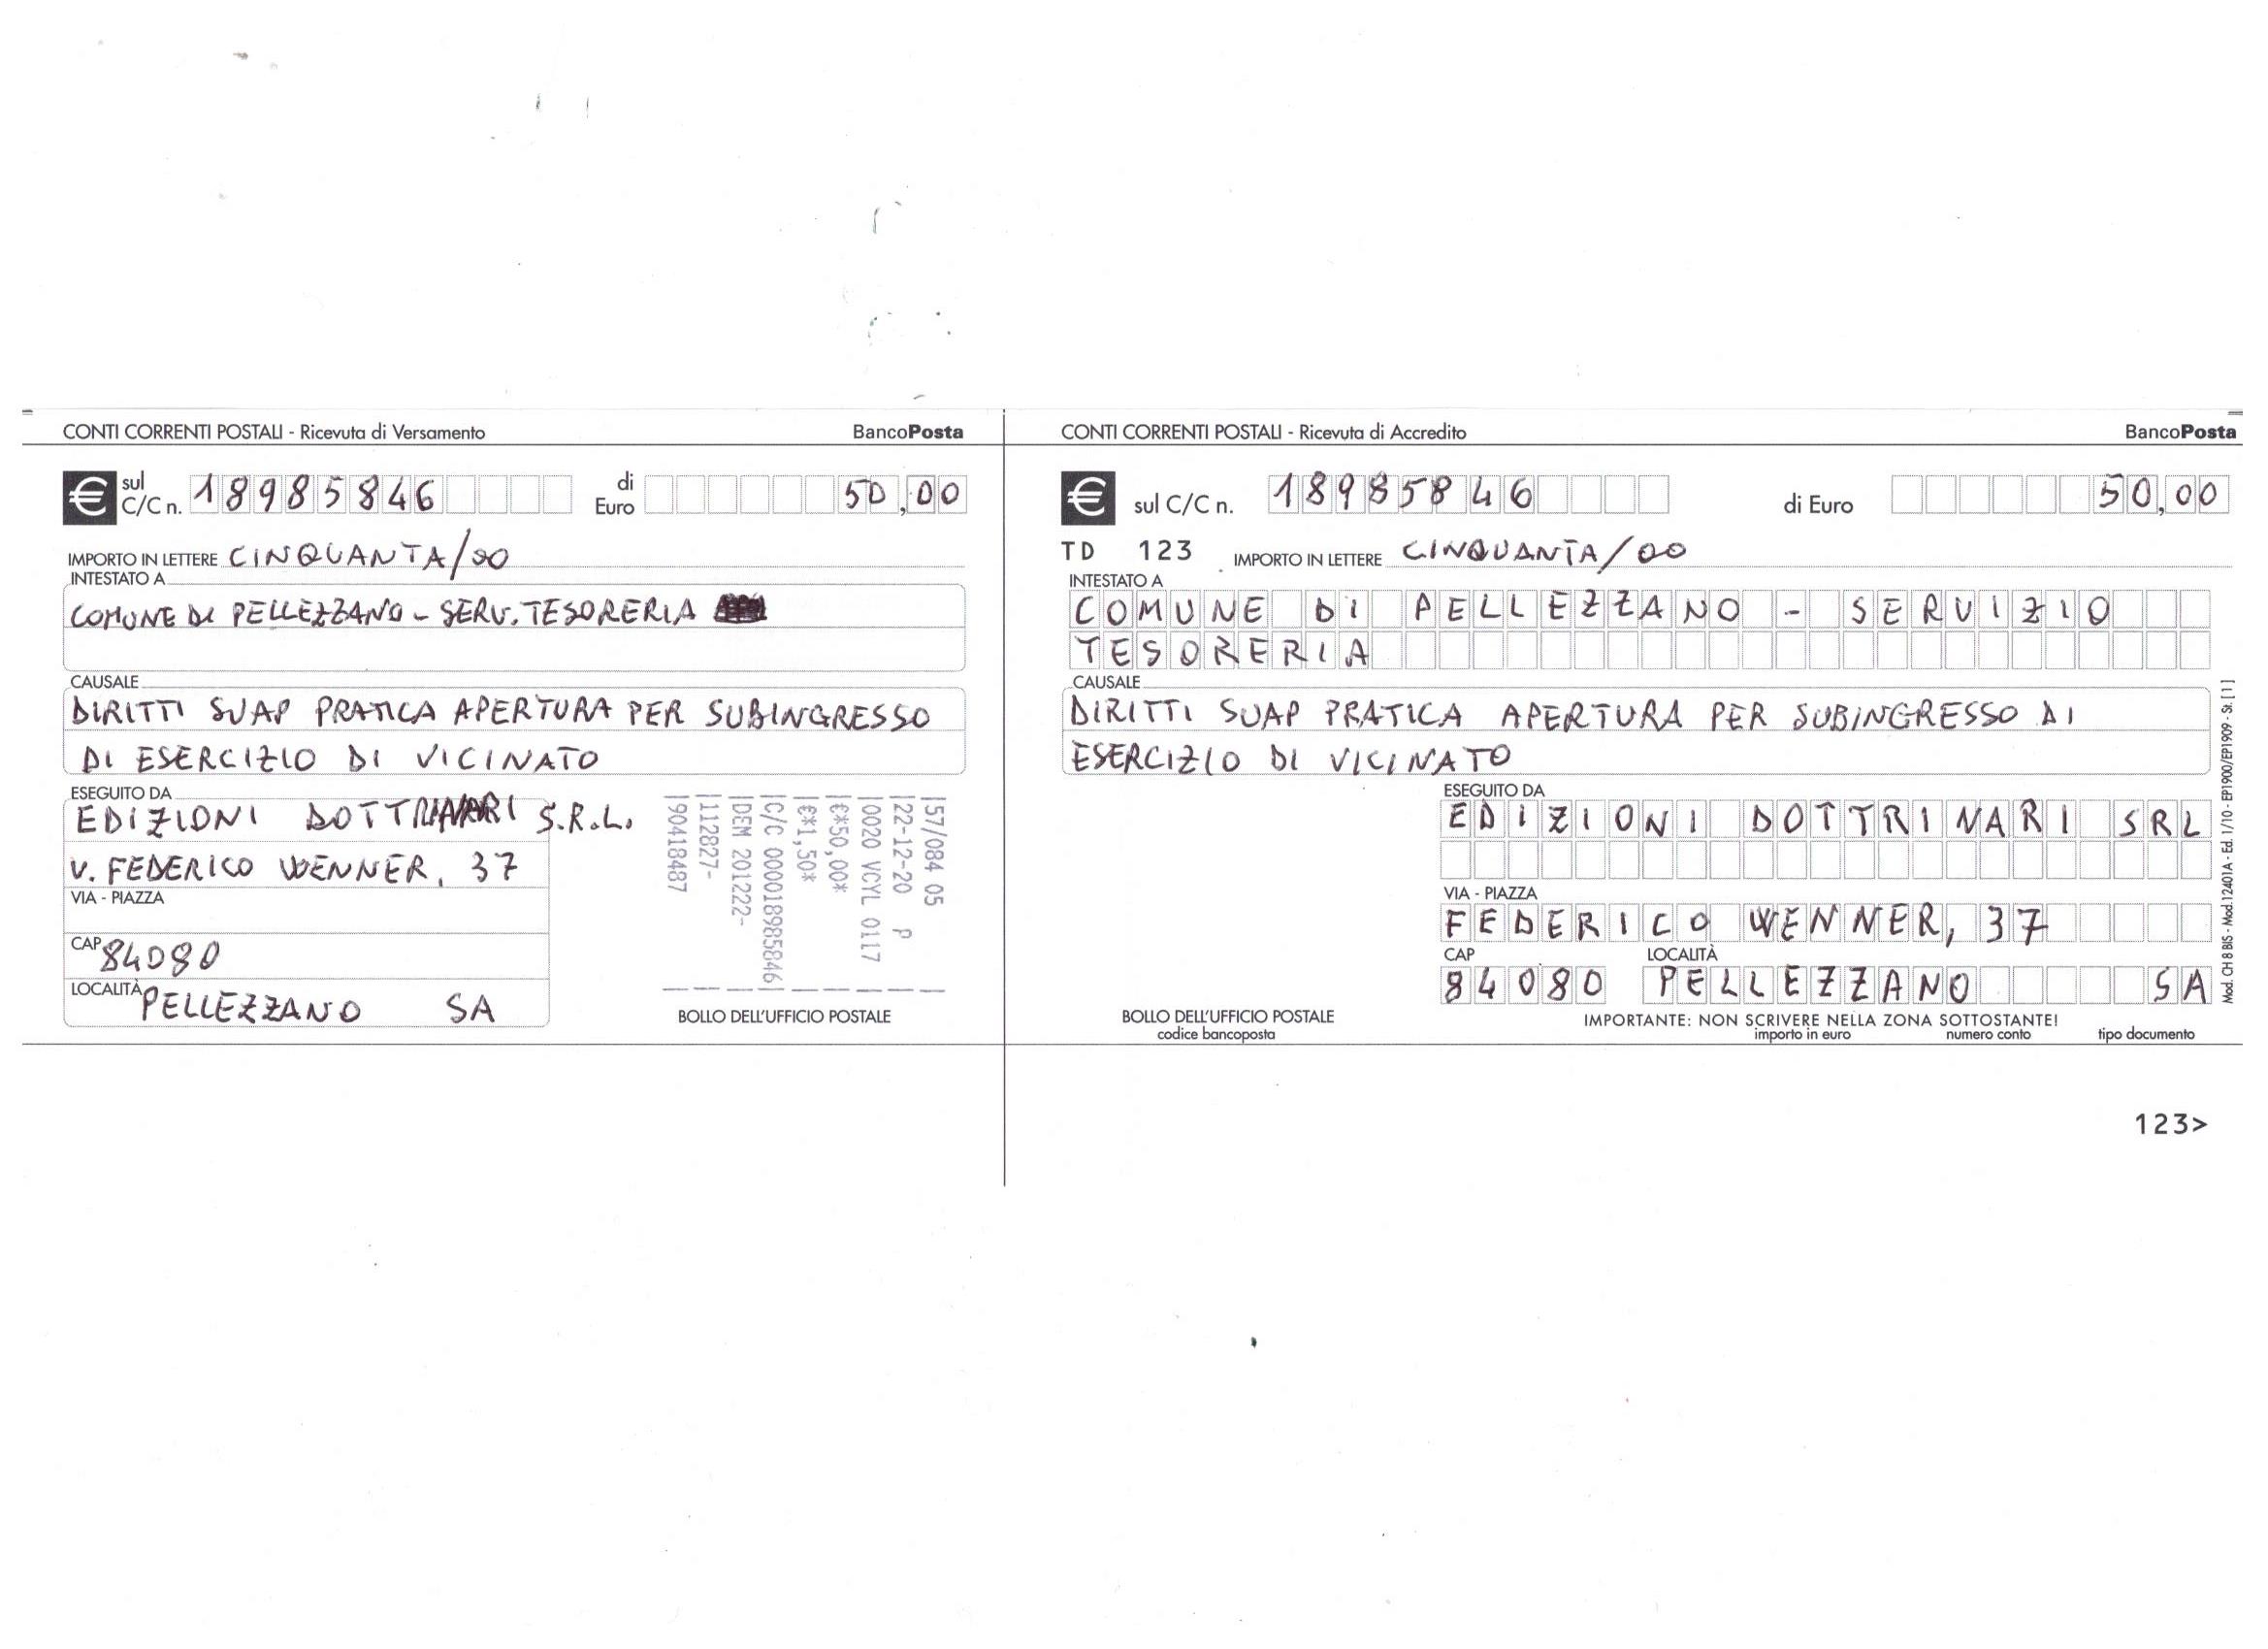 CONTI CORRENTI POSTALI - Ricevuta di Versamento BancoPosta
€ sul C/C n. 18985846 di Euro 50,00
IMPORTO IN LETTERE CINQUANTA/00
INTESTATO A
COMUNE DI PELLEZZANO - SERV. TESORERIA
CAUSALE
DIRITTI SUAP PRATICA APERTURA PER SUBINGRESSO
DI ESERCIZIO DI VICINATO
ESEGUITO DA
EDIZIONI DOTTRINARI S.R.L.
V. FEDERICO WENNER, 37
VIA - PIAZZA
CAP 84080
LOCALITÀ PELLEZZANO SA
57/084 05
22-12-20 P
0020 VCYL 0117
€*50,00*
€*1,50*
C/C 000018985846
DEM 201222-
112827-
90418487
BOLLO DELL'UFFICIO POSTALE
CONTI CORRENTI POSTALI - Ricevuta di Accredito BancoPosta
€ sul C/C n. 18985846 di Euro 50,00
TD 123 IMPORTO IN LETTERE CINQUANTA/00
INTESTATO A
COMUNE DI PELLEZZANO - SERVIZIO
TESORERIA
CAUSALE
DIRITTI SUAP PRATICA APERTURA PER SUBINGRESSO DI
ESERCIZIO DI VICINATO
ESEGUITO DA
EDIZIONI DOTTRINARI SRL
VIA - PIAZZA
FEDERICO WENNER, 37
CAP LOCALITÀ
84080 PELLEZZANO SA
BOLLO DELL'UFFICIO POSTALE
codice bancoposta
IMPORTANTE: NON SCRIVERE NELLA ZONA SOTTOSTANTE!
importo in euro numero conto tipo documento
Mod. CH 8 BIS - Mod.12401A - Ed. 1/10 - EP1900/EP1909 - St. [1]
123>